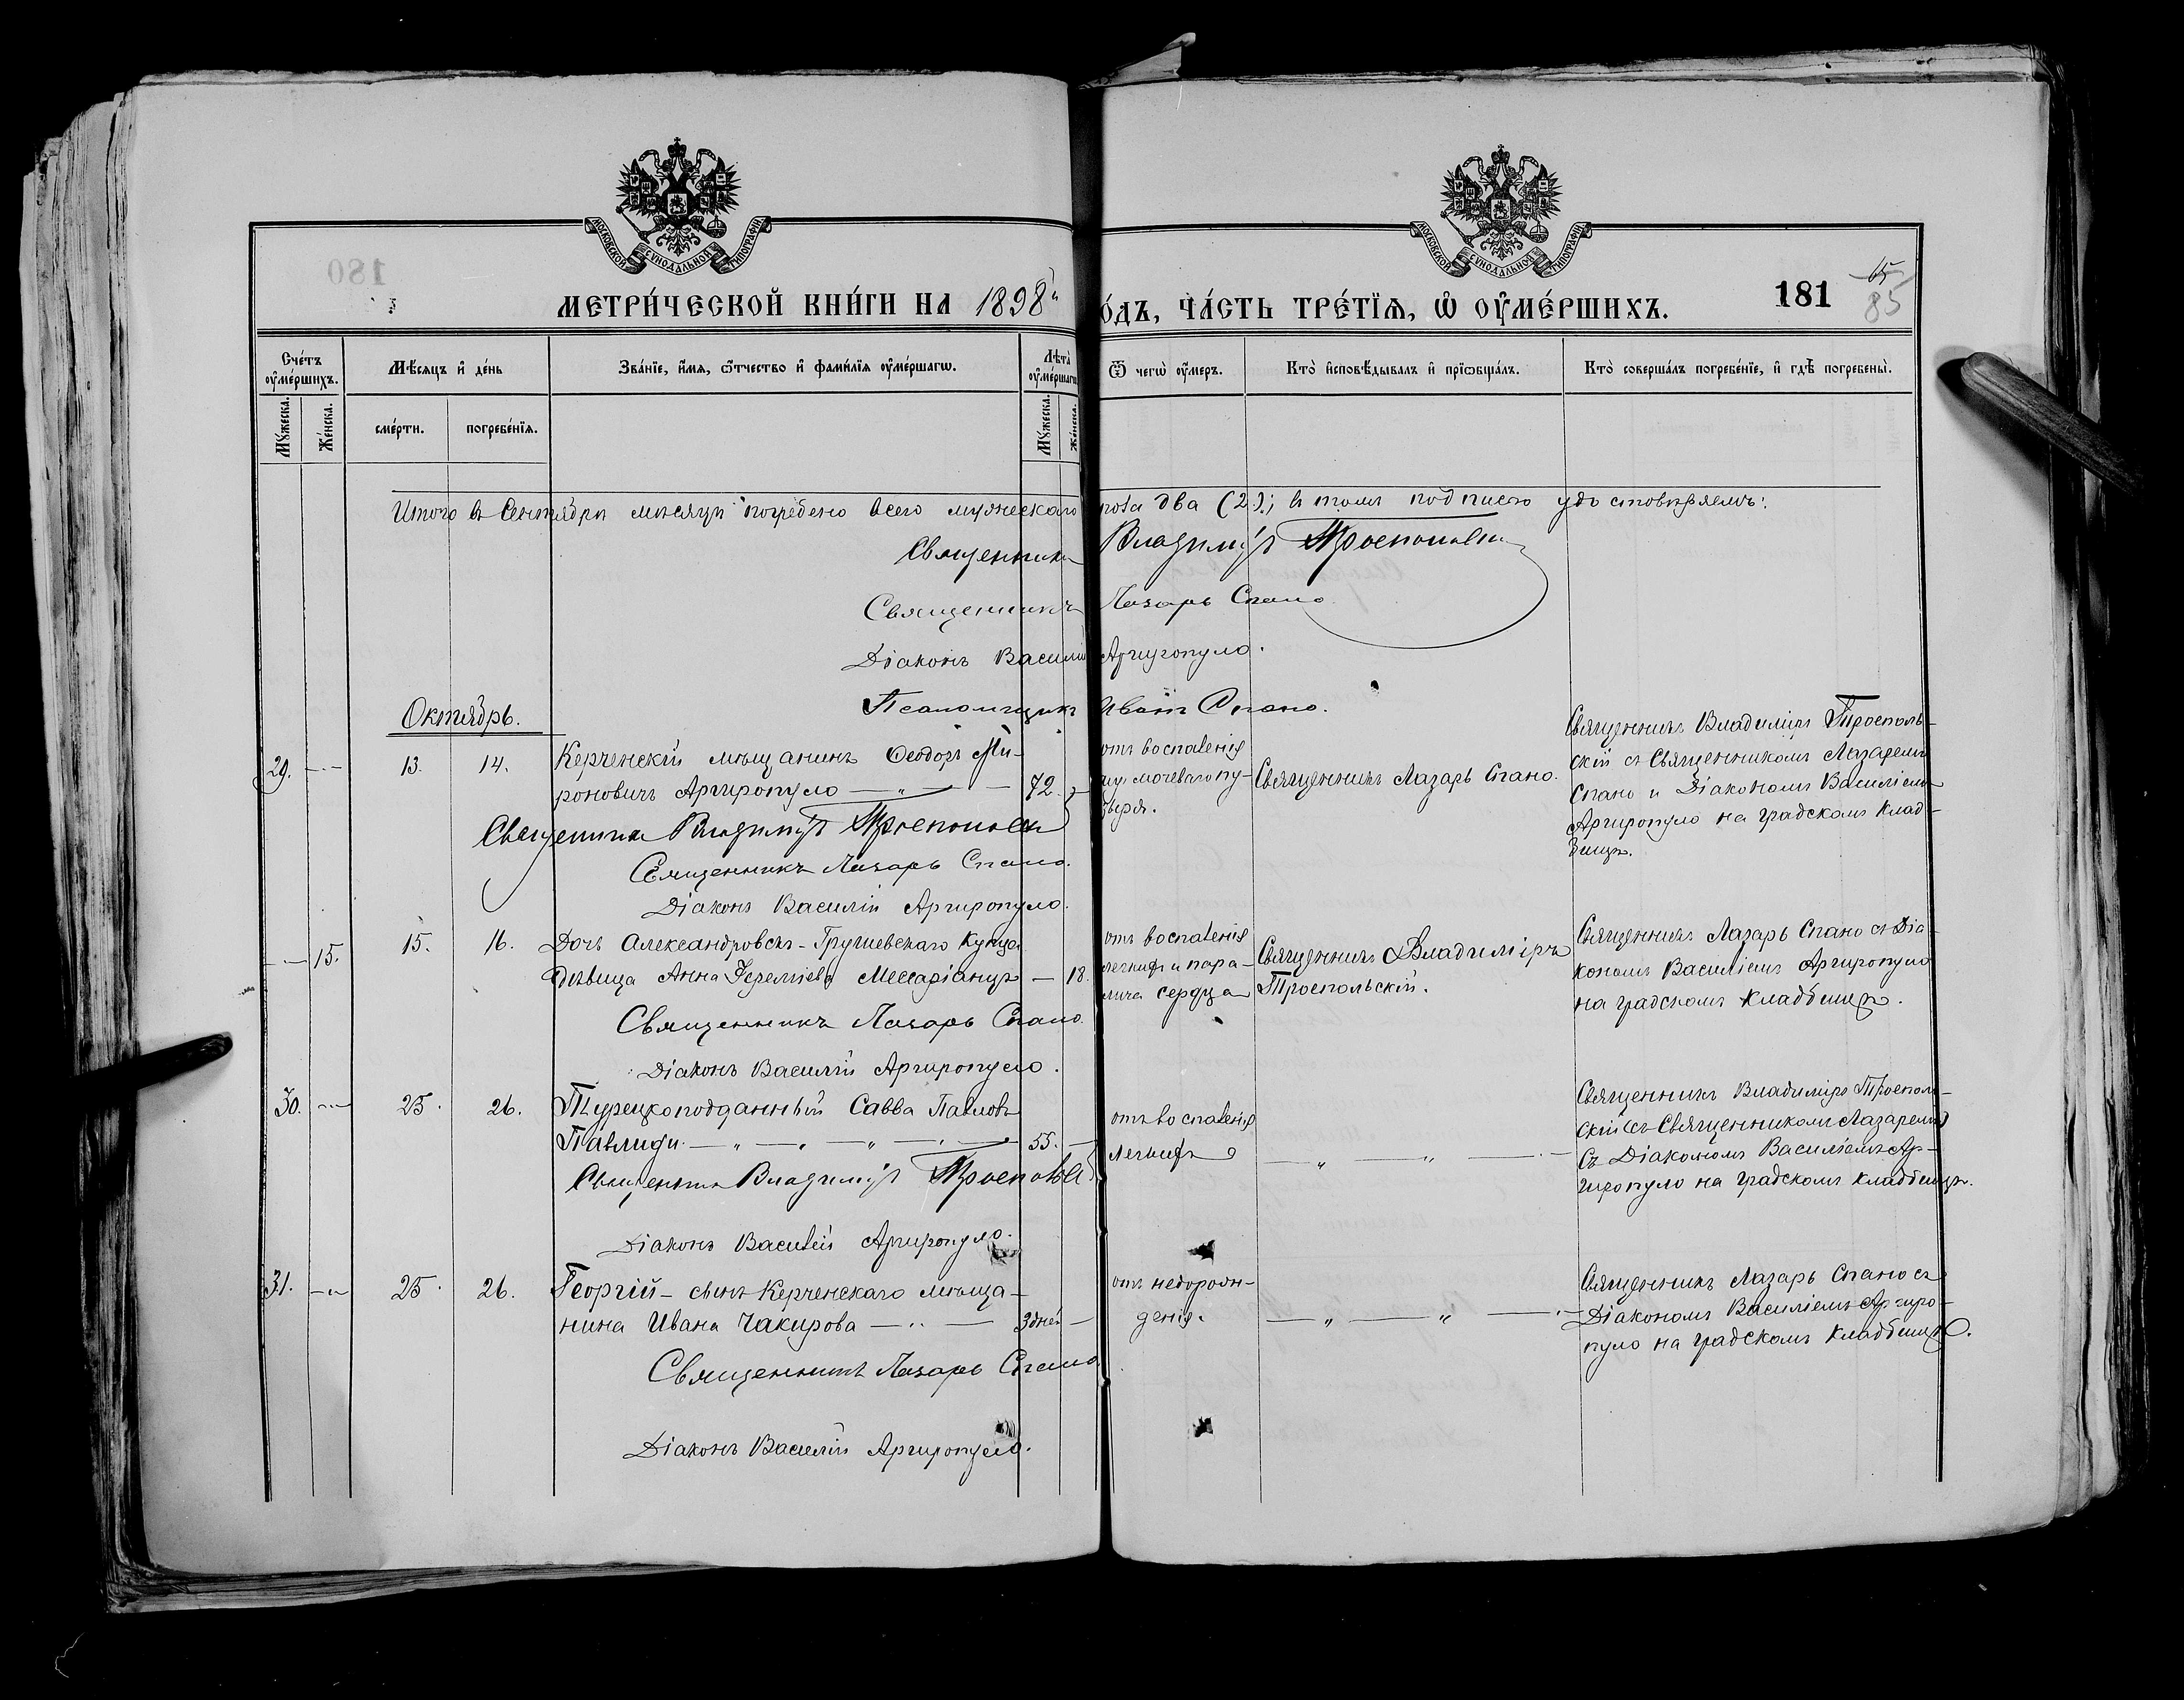 МОСКОВСКОЙ СѴНОДАЛЬНОЙ ТИПОГРАФІИ
МОСКОВСКОЙ СѴНОДАЛЬНОЙ ТИПОГРАФІИ
180
МЕТРИ́ЧЕСКОЙ КНИ́ГИ НА 1898й
О́ДЪ, ЧА́СТЬ ТРЕ́ТЇѦ, Ѡ҆ ОУ҆МЕ́РШИХЪ.
181
65
85
Сче́тъ оу҆ме́ршихъ.
Мѣ́сѧцъ и҆ де́нь
Зва́нїе, и҆́мѧ, ѻ҆́тчество и҆ фами́лїѧ оу҆ме́ршагѡ.
Лѣ́та оу҆ме́ршагѡ
Ѿ чегѡ̀ оу҆́меръ.
Кто̀ и҆сповѣ́дывалъ и҆ прїѡбща́лъ.
Кто̀ соверша́лъ погребе́нїе, и҆ гдѣ̀ погребены̀.
Мꙋ́жеска.
Же́нска.
сме́рти.
погребе́нїѧ.
Мꙋ́жеска.
Же́нска.
Итого въ Сентябрѣ мѣсяцѣ погребено всего мужескаго пола два (2); въ томъ подписью удостовѣряемъ:
Священникъ Владиміръ Троепольскій
Священникъ Лазарь Спано
Діаконъ Василій Аргиропуло.
Псаломщикъ Иванъ Спано.
Октябрь.
29. — 13. 14.
Керченскій мѣщанинъ Ѳеодоръ Ми-
роновичъ Аргиропуло — „ — 72. —
отъ воспаленія
мочеваго пу-
зыря.
Священникъ Лазарь Спано.
Священникъ Владиміръ Троеполь-
скій съ Священникомъ Лазаремъ
Спано и Діакономъ Василіемъ
Аргиропуло на градскомъ клад-
бищѣ.
Священникъ Владиміръ Троепольскій
Священникъ Лазарь Спано.
Діаконъ Василій Аргиропуло.
— 15. 15. 16.
Дочь Александровскъ-Грушевскаго купца
дѣвица Анна Іереміева Мессаріанцъ — 18.
отъ воспаленія
легкихъ и пара-
лича сердца
Священникъ Владиміръ
Троепольскій.
Священникъ Лазарь Спано съ Діа-
кономъ Василіемъ Аргиропуло
на градскомъ кладбищѣ.
Священникъ Лазарь Спано.
Діаконъ Василій Аргиропуло.
30. — 25. 26.
Турецкоподданный Савва Павловъ
Павлиди — „ — „ — „ — 55. —
отъ воспаленія
легкихъ
— „ — „ —
Священникъ Владиміръ Троеполь-
скій съ Священникомъ Лазаремъ
съ Діакономъ Василіемъ Ар-
гиропуло на градскомъ кладбищѣ.
Священникъ Владиміръ Троепольскій
Діаконъ Василій Аргиропуло.
31. — 25. 26.
Георгій - сынъ Керченскаго мѣща-
нина Ивана Чакирова — „ — 3 дней —
отъ недорож-
денія.
— „ — „ —
Священникъ Лазарь Спано съ
Діакономъ Василіемъ Аргиро-
пуло на градскомъ кладбищѣ.
Священникъ Лазарь Спано.
Діаконъ Василій Аргиропуло.